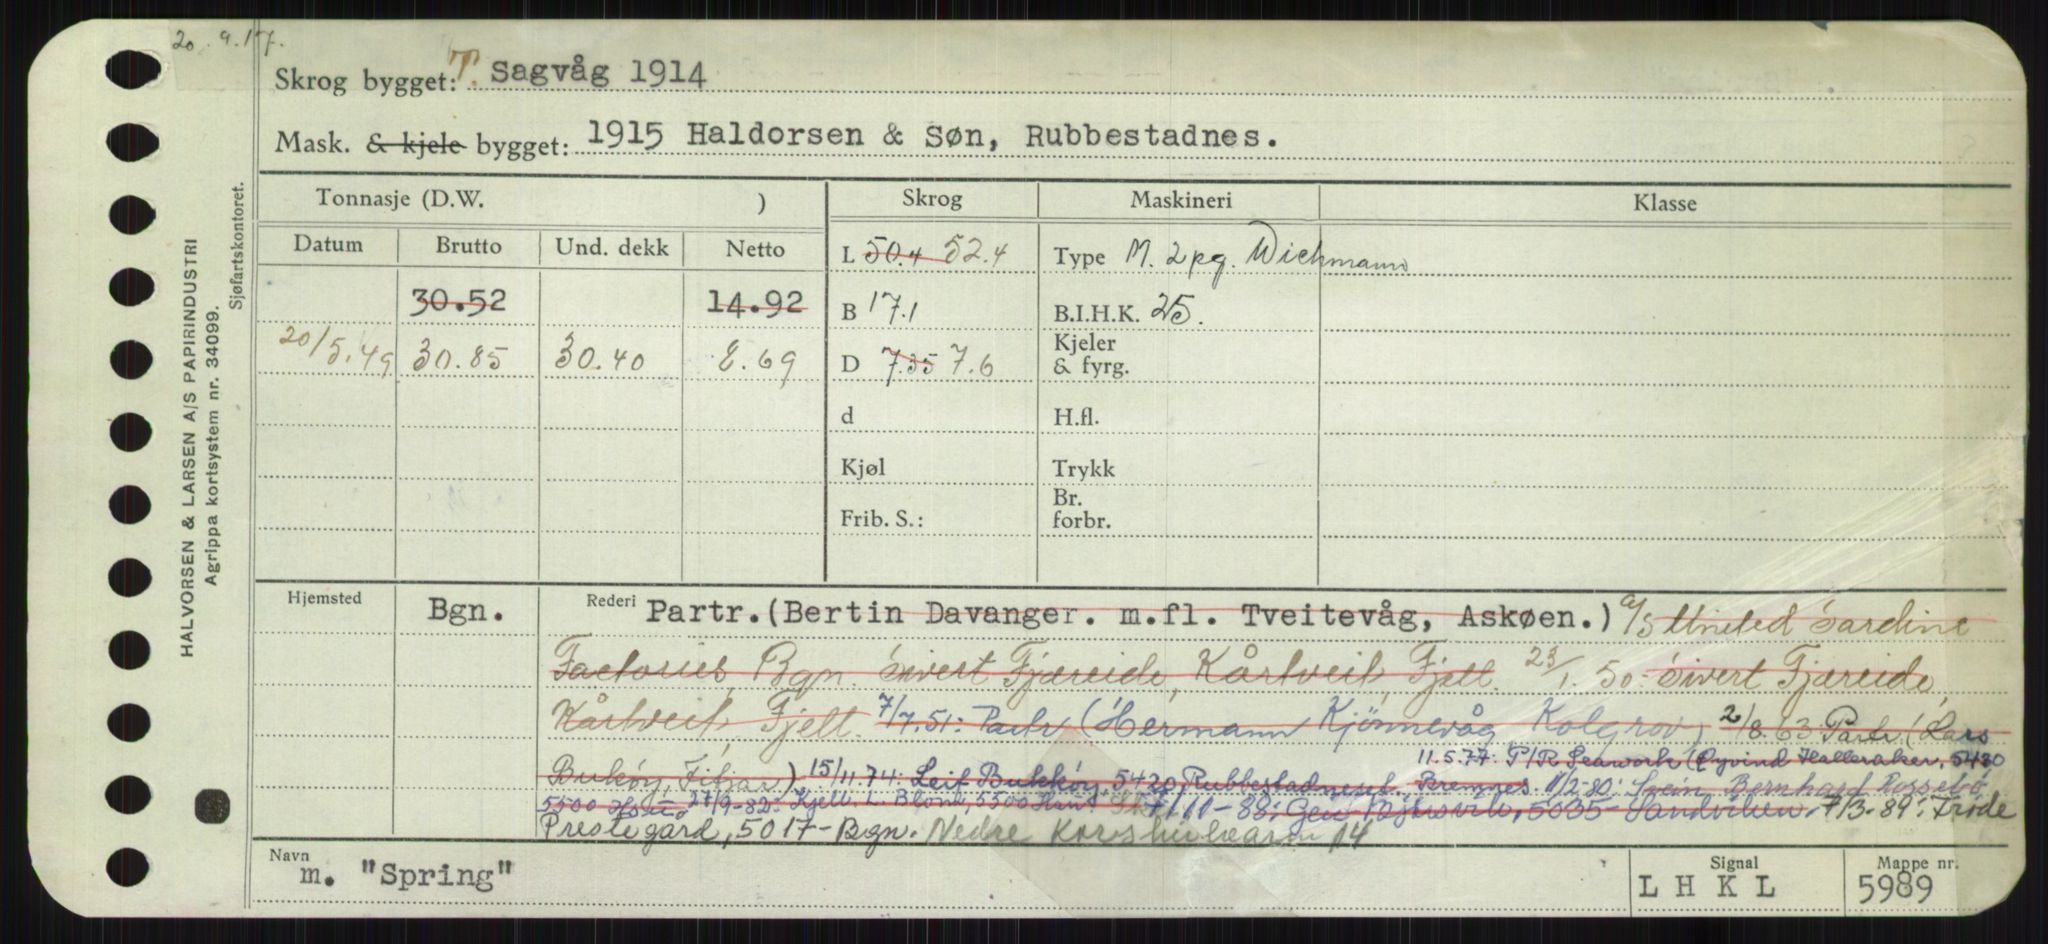 20.9.17.
Skrog bygget: T. Sagvåg 1914
Mask. & kjele bygget: 1915 Haldorsen & Søn, Rubbestadnes.
HALVORSEN & LARSEN A/S PAPIRINDUSTRI
Agrippa kortsystem nr. 34099.
Sjøfartskontoret.
Tonnasje (D.W. ) Skrog Maskineri Klasse
Datum Brutto Und. dekk Netto
L 50.4 52.4 Type M. 2 pg. Wichmann
30.52 14.92 B 17.1 B.I.H.K. 25.
20/5.49 30.85 30.40 8.69 D 7.35 7.6 Kjeler & fyrg.
d H.fl.
Kjøl Trykk
Frib. S.: Br. forbr.
Hjemsted Bgn. Rederi Partr.(Bertin Davanger. m.fl. Tveitevåg, Askøen.) A/S United Sardine
Factories, Bgn. Sivert Fjæreide, Kårtveit, Fjell. 23/1.50: Sivert Fjæreide,
Kårtveit, Fjell. 7/7.51: Partr (Hermann Kjønnevåg Kolgrov) 2/8.63 Partr (Lars
Bukøy, Fitjar) 15/11.74: Leif Bukkøy, 5420 Rubbestadneset. 11.5.77: P/R Seawork (Øyvind Halleraker, 5430
Bremnes. 11/2-80: Svein Bernhard Rossebø
5500 27/9-82: Kjell L. Blom, 5500 7/11-88: Geir 5035 Sandviken. 7/3-89: Frode
Prestegård, 5017-Bgn. Nedre 14
Navn m. "Spring" Signal LHKL Mappe nr. 5989